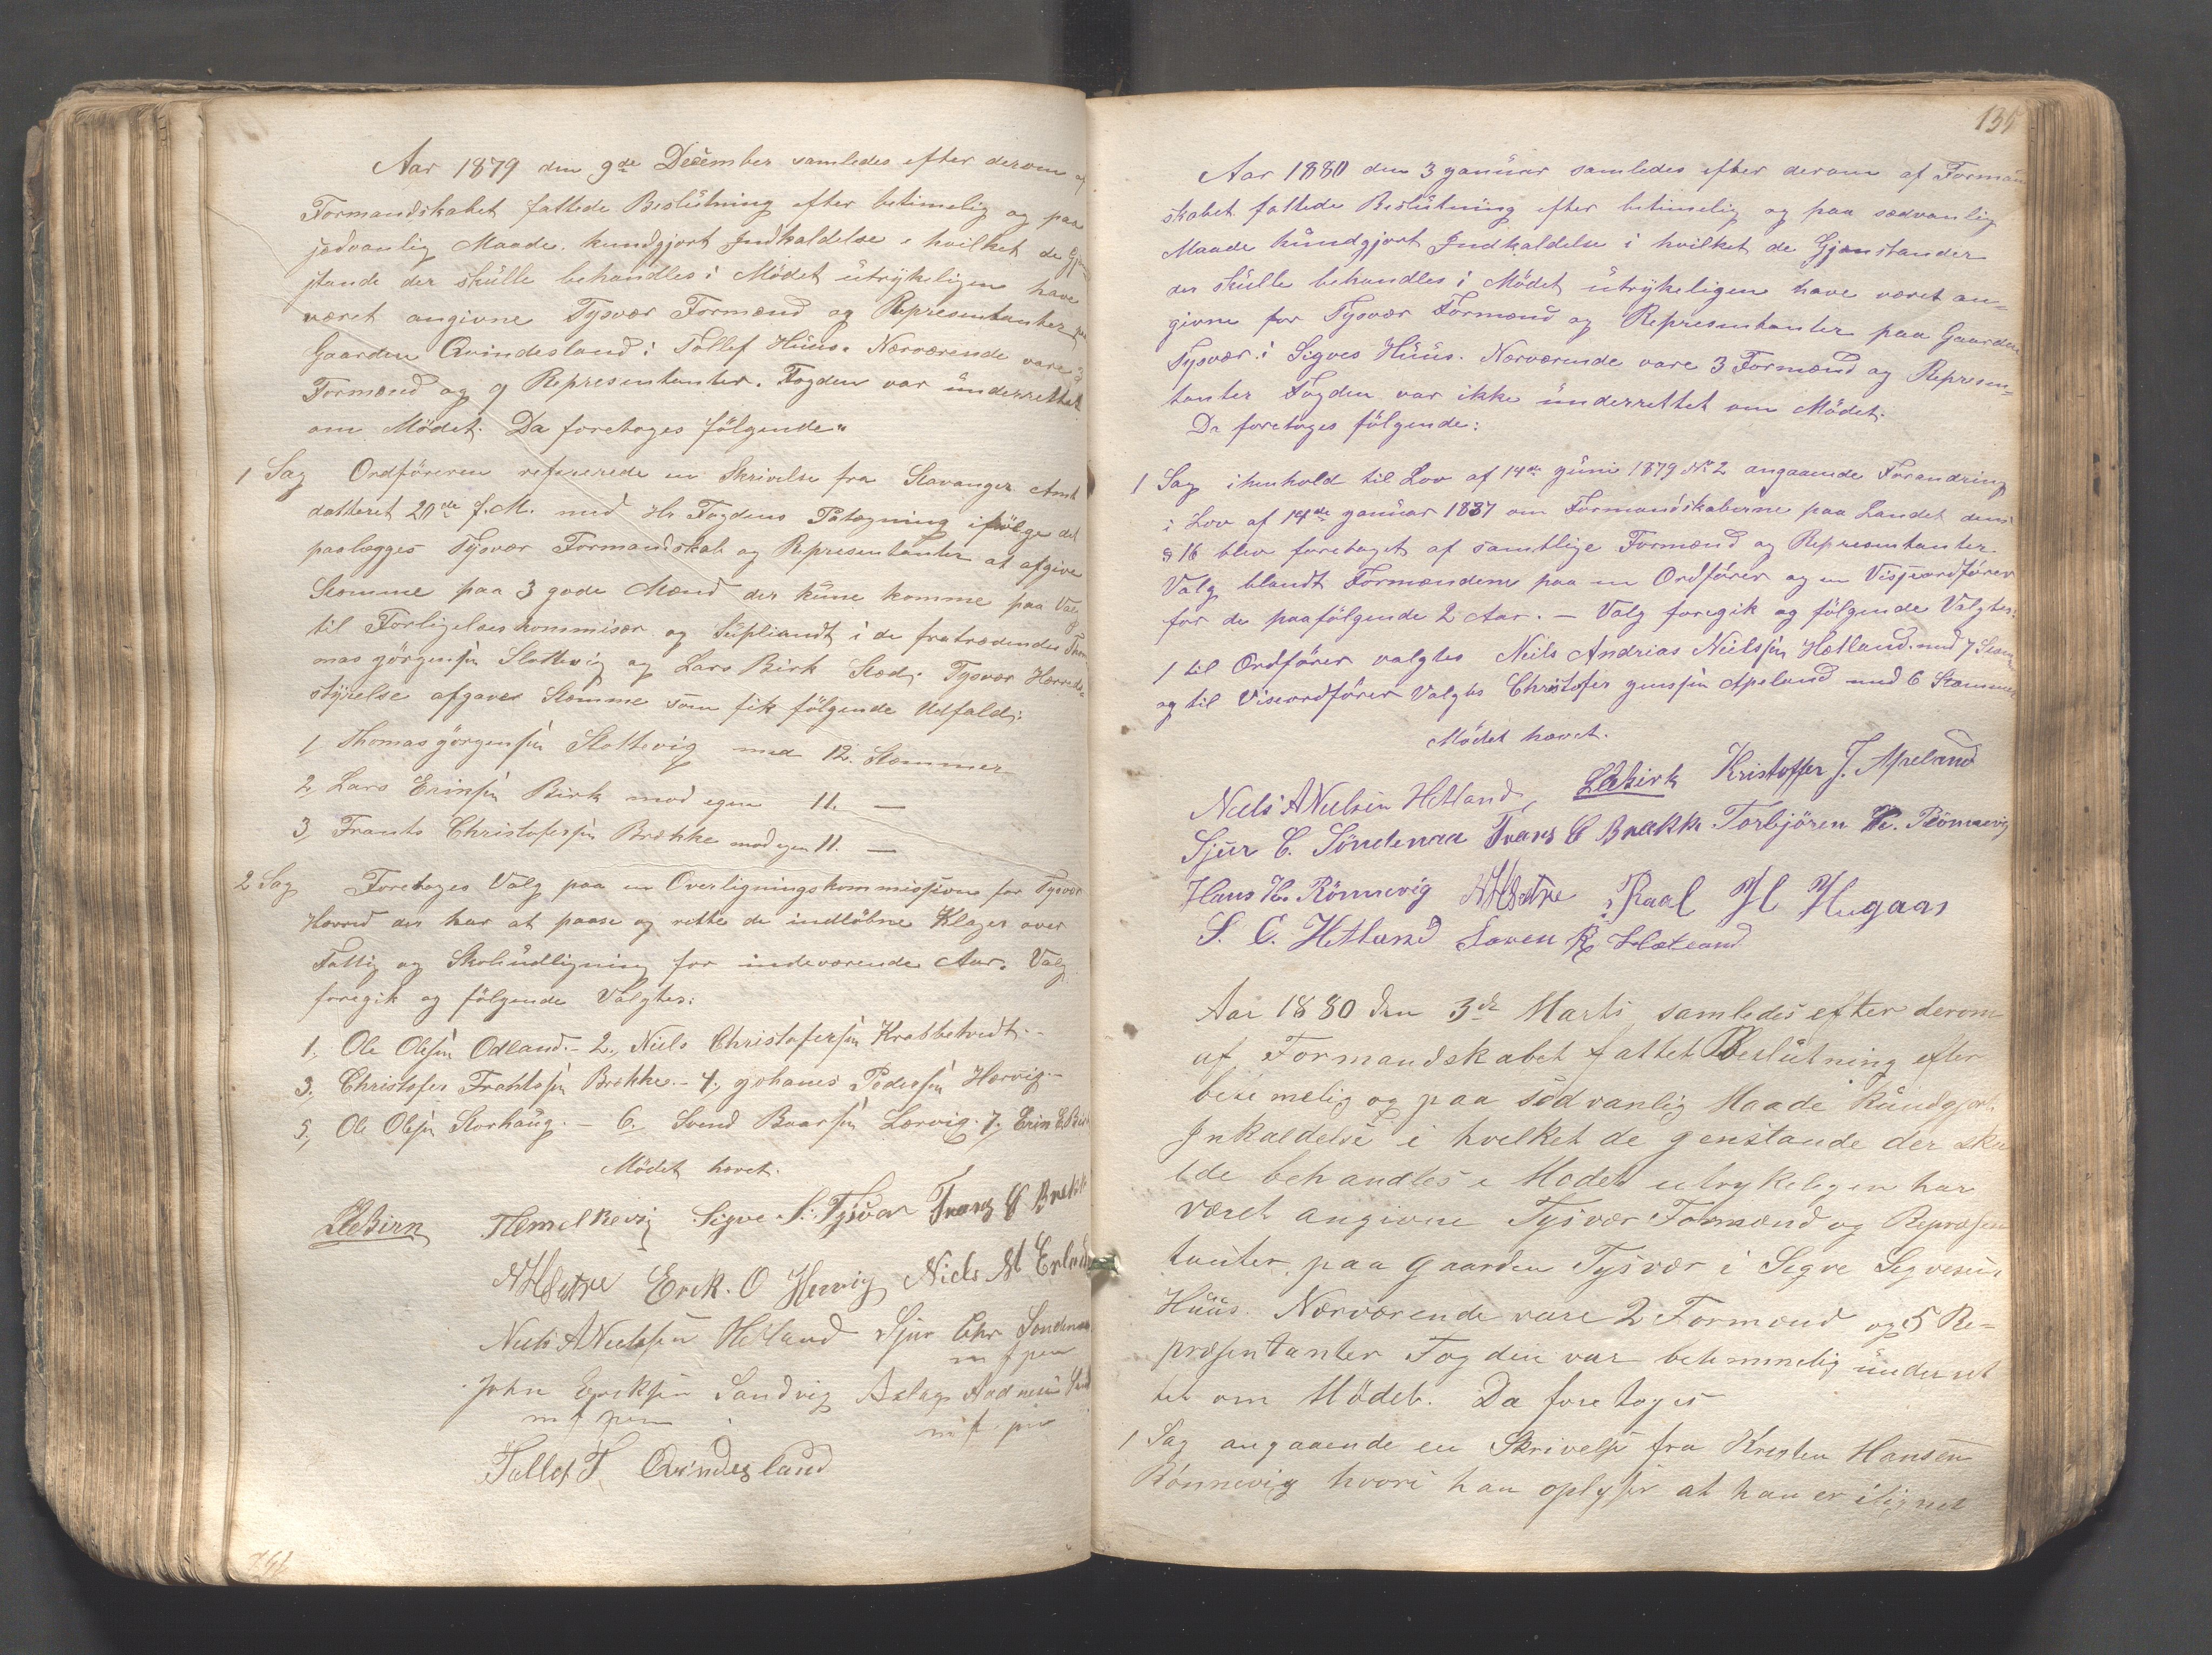 Aar 1879 den 9de December samledes efter derom af
Formandskabet fattede Beslütning efter betimelig og paa
sedvanlig Maade kundgjort Indkaldelse i hvilket de Gjen
stande der skülle behandles i Mödet ütrykeligen have
været angivne Tysvær Formænd og Representanter paa
Gaarden Qvindesland i Tollef Hüüs. Nærværende vare 3
Formænd og 9 Representanter. Fogden var ünderrettet
om Mödet. Da foretoges fölgende:
1 Sag Ordföreren refererede en Skrivelse fra Stavanger Amt
datteret 20de f.M. med Hr Fogdens Patægning ifölge det
paalægges Tysvær Formandskab og Representanter at afgive
Stemme paa 3 gode Mænd der küne komme paa Valg
til Forligelseskommisær og Süpliandt i de fratrædendes Tho
mas Görgensen Slottevig og Lars Birk Sted. Tysvær Herreds-
styrelse afgaves Stemme som fik fölgende Udfald:
1 Thomas Görgensen Slottevig med 12. Stemmer
2, Lars Erinsen Birk mod egen 11. —
3, Frants Christofersen Brække mod egen 11. —
2 Sag Foretoges Valg paa en Overligningskommission for Tysvær
Herred der har at paase og rette de indlöbne Klager over
Fattig og Skoleüdligning for indeværende Aar. Valg
foregik og fölgende Valgtes:
1, Ole Olesen Odland.- 2, Niels Christofersen Krabbetvedt.-
3, Christofer Frantssen Brekke.- 4, Johanes Pedersen Hervig.-
5, Ole Olesen Storhaüg.- 6. Svend Baarsen Lervig. 7, Erin L Birk
Mödet hævet.
LEBirk Sigve S. Tysvær Frans C Brekke
NHSætre Erik. O Hervig Niels M
Niels A Nielssen Hetland Sjur Chr Söndenaa
m f pen
John Ericksen Sandvig Aslag
m f pen m f pen
Tallef T Qvindesland
135
Aar 1880 den 3 Januar samledes efter derom af Forman
skabet fattede Beslütning efter betimelig og paa sædvanlig
Maade kündgjort Indkaldelse i hvilket de Gjenstander
der skülle behandles i Mödet ütrykeligen have været an-
givne for Tysvær Formænd og Representanter paa Gaarden
Tysvær i Sigves Hüüs. Nerværende vare 3 Formænd og Represen-
tanter Fogden var ikke ünderrettet om Mödet.
Da foretoges fölgende:
1 Sag ihenhold til Lov af 14de Jüni 1879 No 2 angaaende Forandring
i Lov af 14de Januar 1837 om Formandskaberne paa Landet dens
§ 16 blev foretaget af samtlige Formænd og Representanter
Valg blandt Formændene paa en Ordförer og en Viseordförer
for de paafölgende 2 Aar. — Valg foregik og fölgende Valgtes:
1 til Ordförer valgtes Niels Andrias Nielsen Hetland med 7 Stem
og til Viseordförer Valgtes Christofer Jensen Apeland med 6 Stemmer
Mödet hævet.
Niels A Nielsen Hetland, LEBirk Kristoffer J. Apeland
Sjur C. Söndenaa Frans C Brekk Torbjören K. Rönnevig
Hans K. Rönnevig NHSætre Paal H Hegaas
S. C. Hetland Soren R Hetland
Aar 1880 den 3de Marts samledes efter derom
af Formandskabet fattet Beslutning efter
betimelig og paa sedvanlig Maade kündgjort
Inkaldelse i hvilket de genstande der sku
lde behandles i Modet utrykeligen har
været angivne Tysvær Formænd og Repræsen
tanter paa gaarden Tysvær i Sigve Sigvesens
Hüüs. Nerværende vare 2 Formænd og 5 Re=
præsentanter Fogden var betimmelig ünderret
tet om Mödet. Da foretoges
1 Sag angaaende en Skrivelse fra Kristen Hansen
Rönnevig hvori han oplyser at han er ilignet